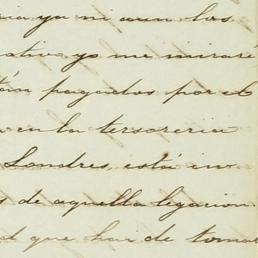 ia ya ni aun los
ativo yo me miraré
tán pagados por el
en la tersoreria
Londres, está in
s de aquella legacion
d que hai de tomar